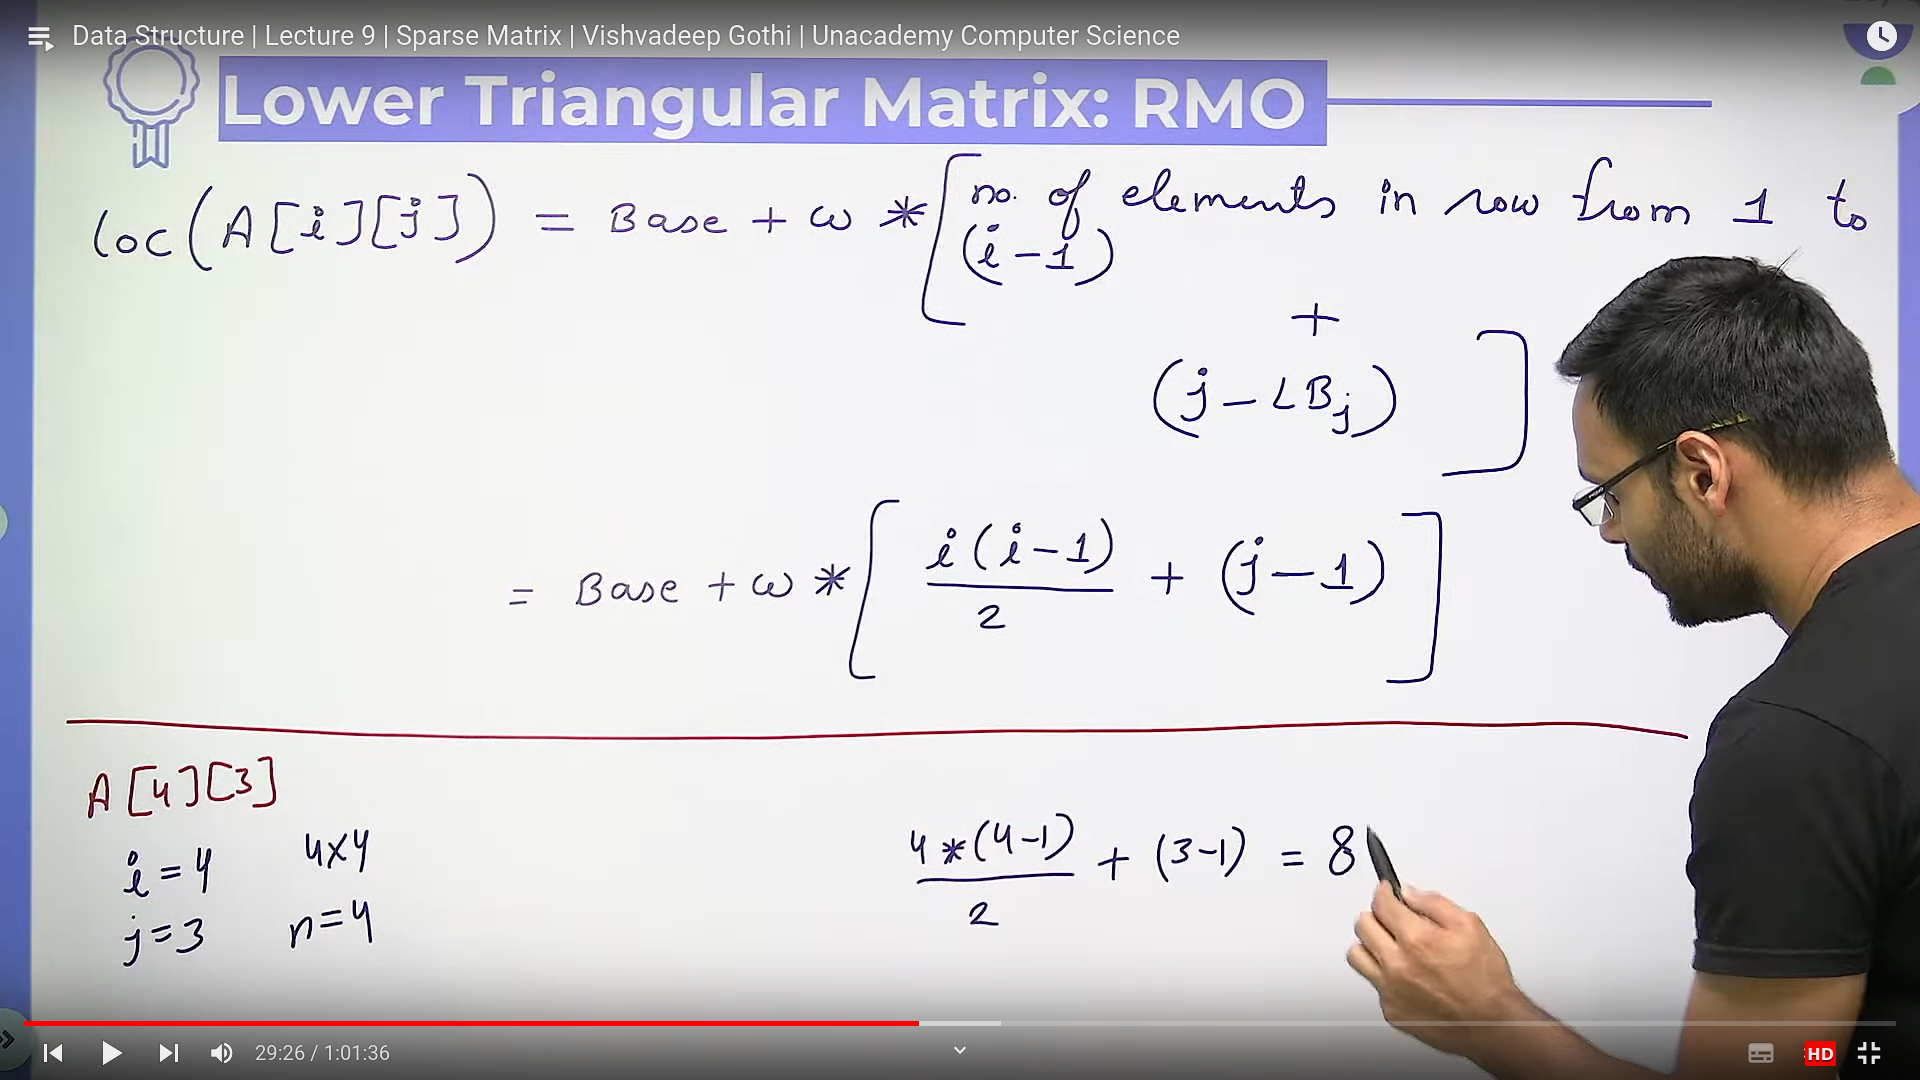 Data Structure | Lecture 9 | Sparse Matrix | Vishvadeep Gothi | Unacademy Computer Science
Lower Triangular Matrix: RMO
Loc(A[i][j]) = Base + ω * [no. of elements in row from 1 to
(i-1)
+
(j - LBj)]
= Base + ω * [i(i-1)/2 + (j-1)]
A[4][3]
i=4 4x4
j=3 n=4
4*(4-1)/2 + (3-1) = 8
29:26 / 1:01:36
HD